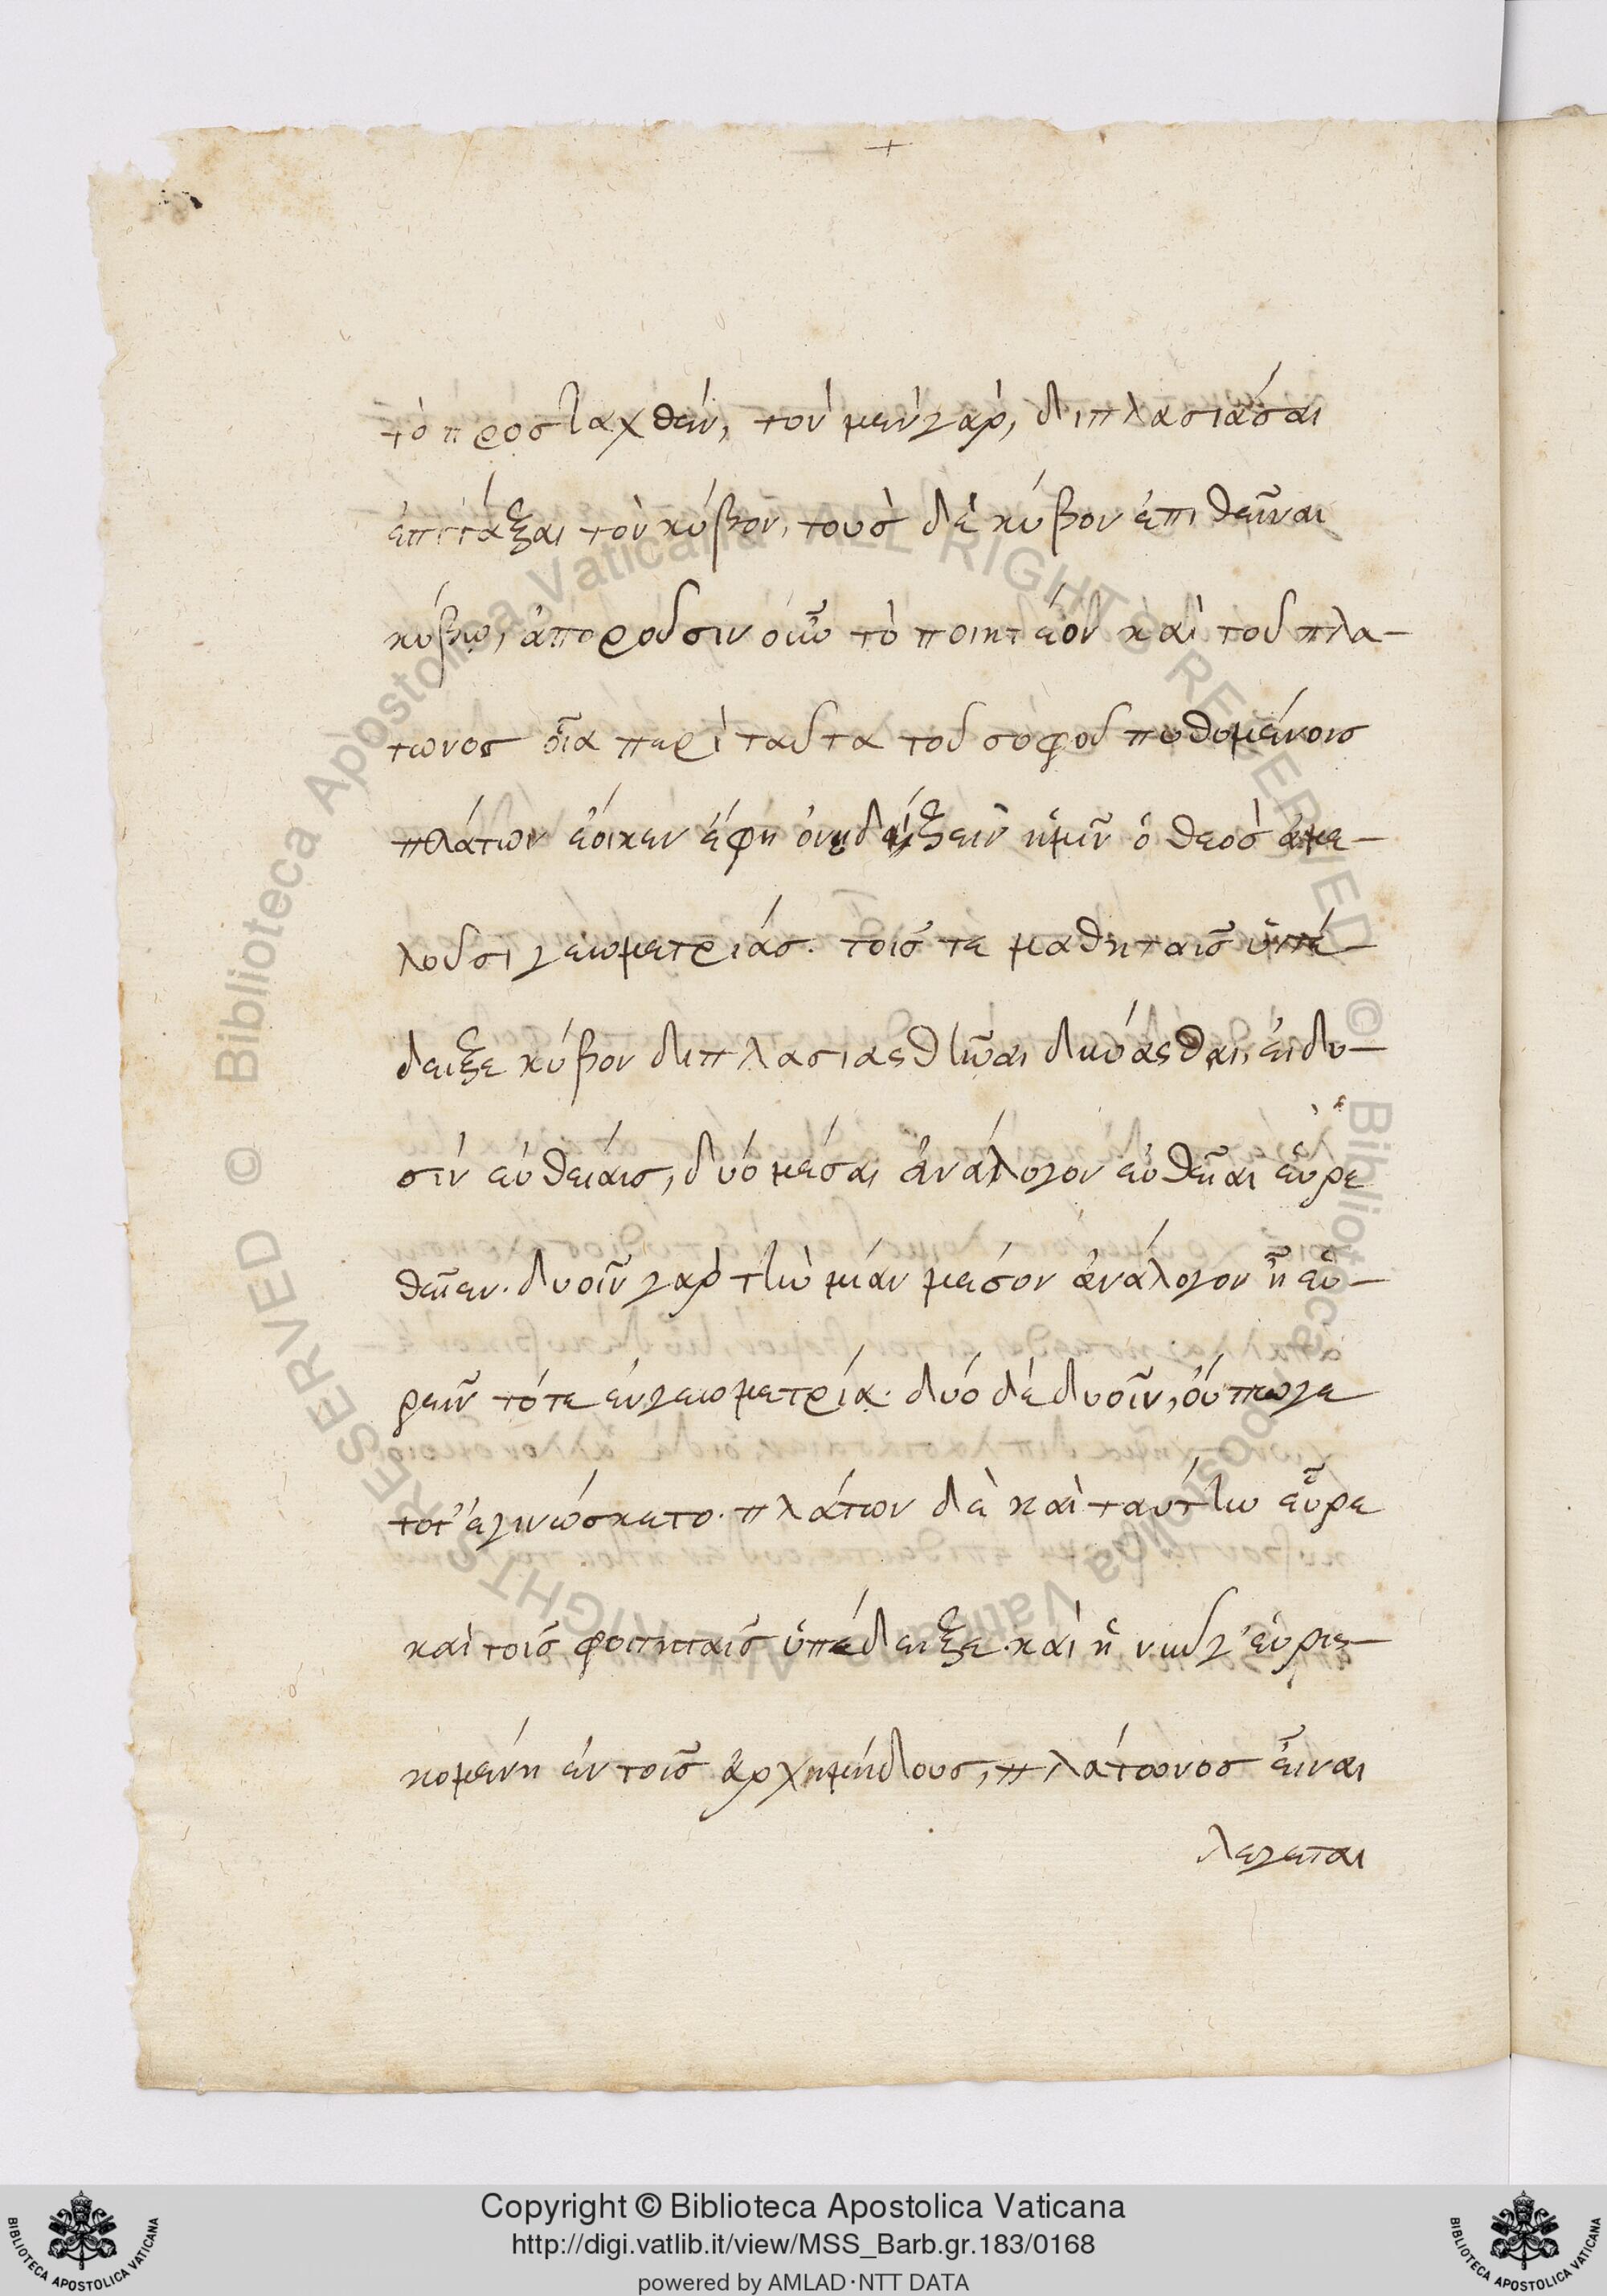 τὸ προσταχθέν, τὸν μὲν γὰρ, διπλασιάσαι
ἐπιτάξαι τὸν κύβον, τοὺς δὲ κύβον ἐπιθεῖναι
κύβῳ, ἀποροῦσιν οὖν τὸ ποιητέον καὶ τοῦ πλά-
τωνος οἷα περὶ ταῦτα τοῦ σοφοῦ πυθομένοις
πλάτων ἔοικεν ἔφη ὀνειδίζειν ἡμῖν ὁ θεὸς ἀμε-
λοῦσι γεωμετρίας. τοῖς τε μαθηταῖς ὑπέ-
δειξε κύβον διπλασιασθῆναι δύνασθαι, εἰ δυ-
σὶν εὐθείαις, δύο μέσαι ἀνάλογον εὐθεῖαι εὑρε
θεῖεν. δυοῖν γὰρ τὴν μίαν μέσον ἀνάλογον ἦ εὑ-
ρεῖν τότε ἐν γεωμετρίᾳ. δύο δὲ δυοῖν, οὔπω γε
τότ' ἐγινώσκετο. πλάτων δὲ καὶ ταύτην εὗρε
καὶ τοῖς φοιτηταῖς ὑπέδειξε. καὶ ἡ νῦν γ' εὑρισ-
κομένη ἐν τοῖς ἀρχιμήδους, πλάτωνος εἶναι
λέγεται
Copyright © Biblioteca Apostolica Vaticana
http://digi.vatlib.it/view/MSS_Barb.gr.183/0168
powered by AMLAD·NTT DATA
BIBLIOTECA APOSTOLICA VATICANA
BIBLIOTECA APOSTOLICA VATICANA
© Biblioteca Apostolica Vaticana ALL RIGHTS RESERVED
© Biblioteca Apostolica Vaticana ALL RIGHTS RESERVED